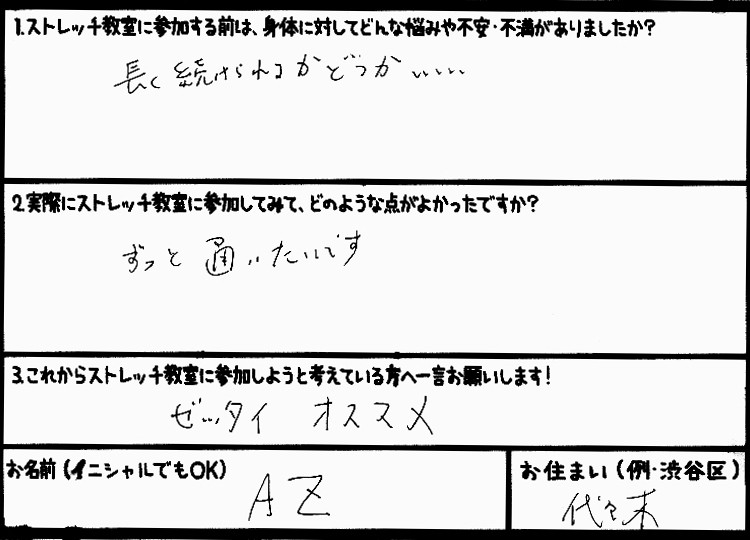 1.ストレッチ教室に参加する前は、身体に対してどんな悩みや不安・不満がありましたか？
長く続けられるかどうか……
2.実際にストレッチ教室に参加してみて、どのような点がよかったですか？
ずっと通いたいです
3.これからストレッチ教室に参加しようと考えている方へ一言お願いします！
ゼッタイ オススメ
お名前（イニシャルでもOK）
AZ
お住まい（例・渋谷区）
代々木